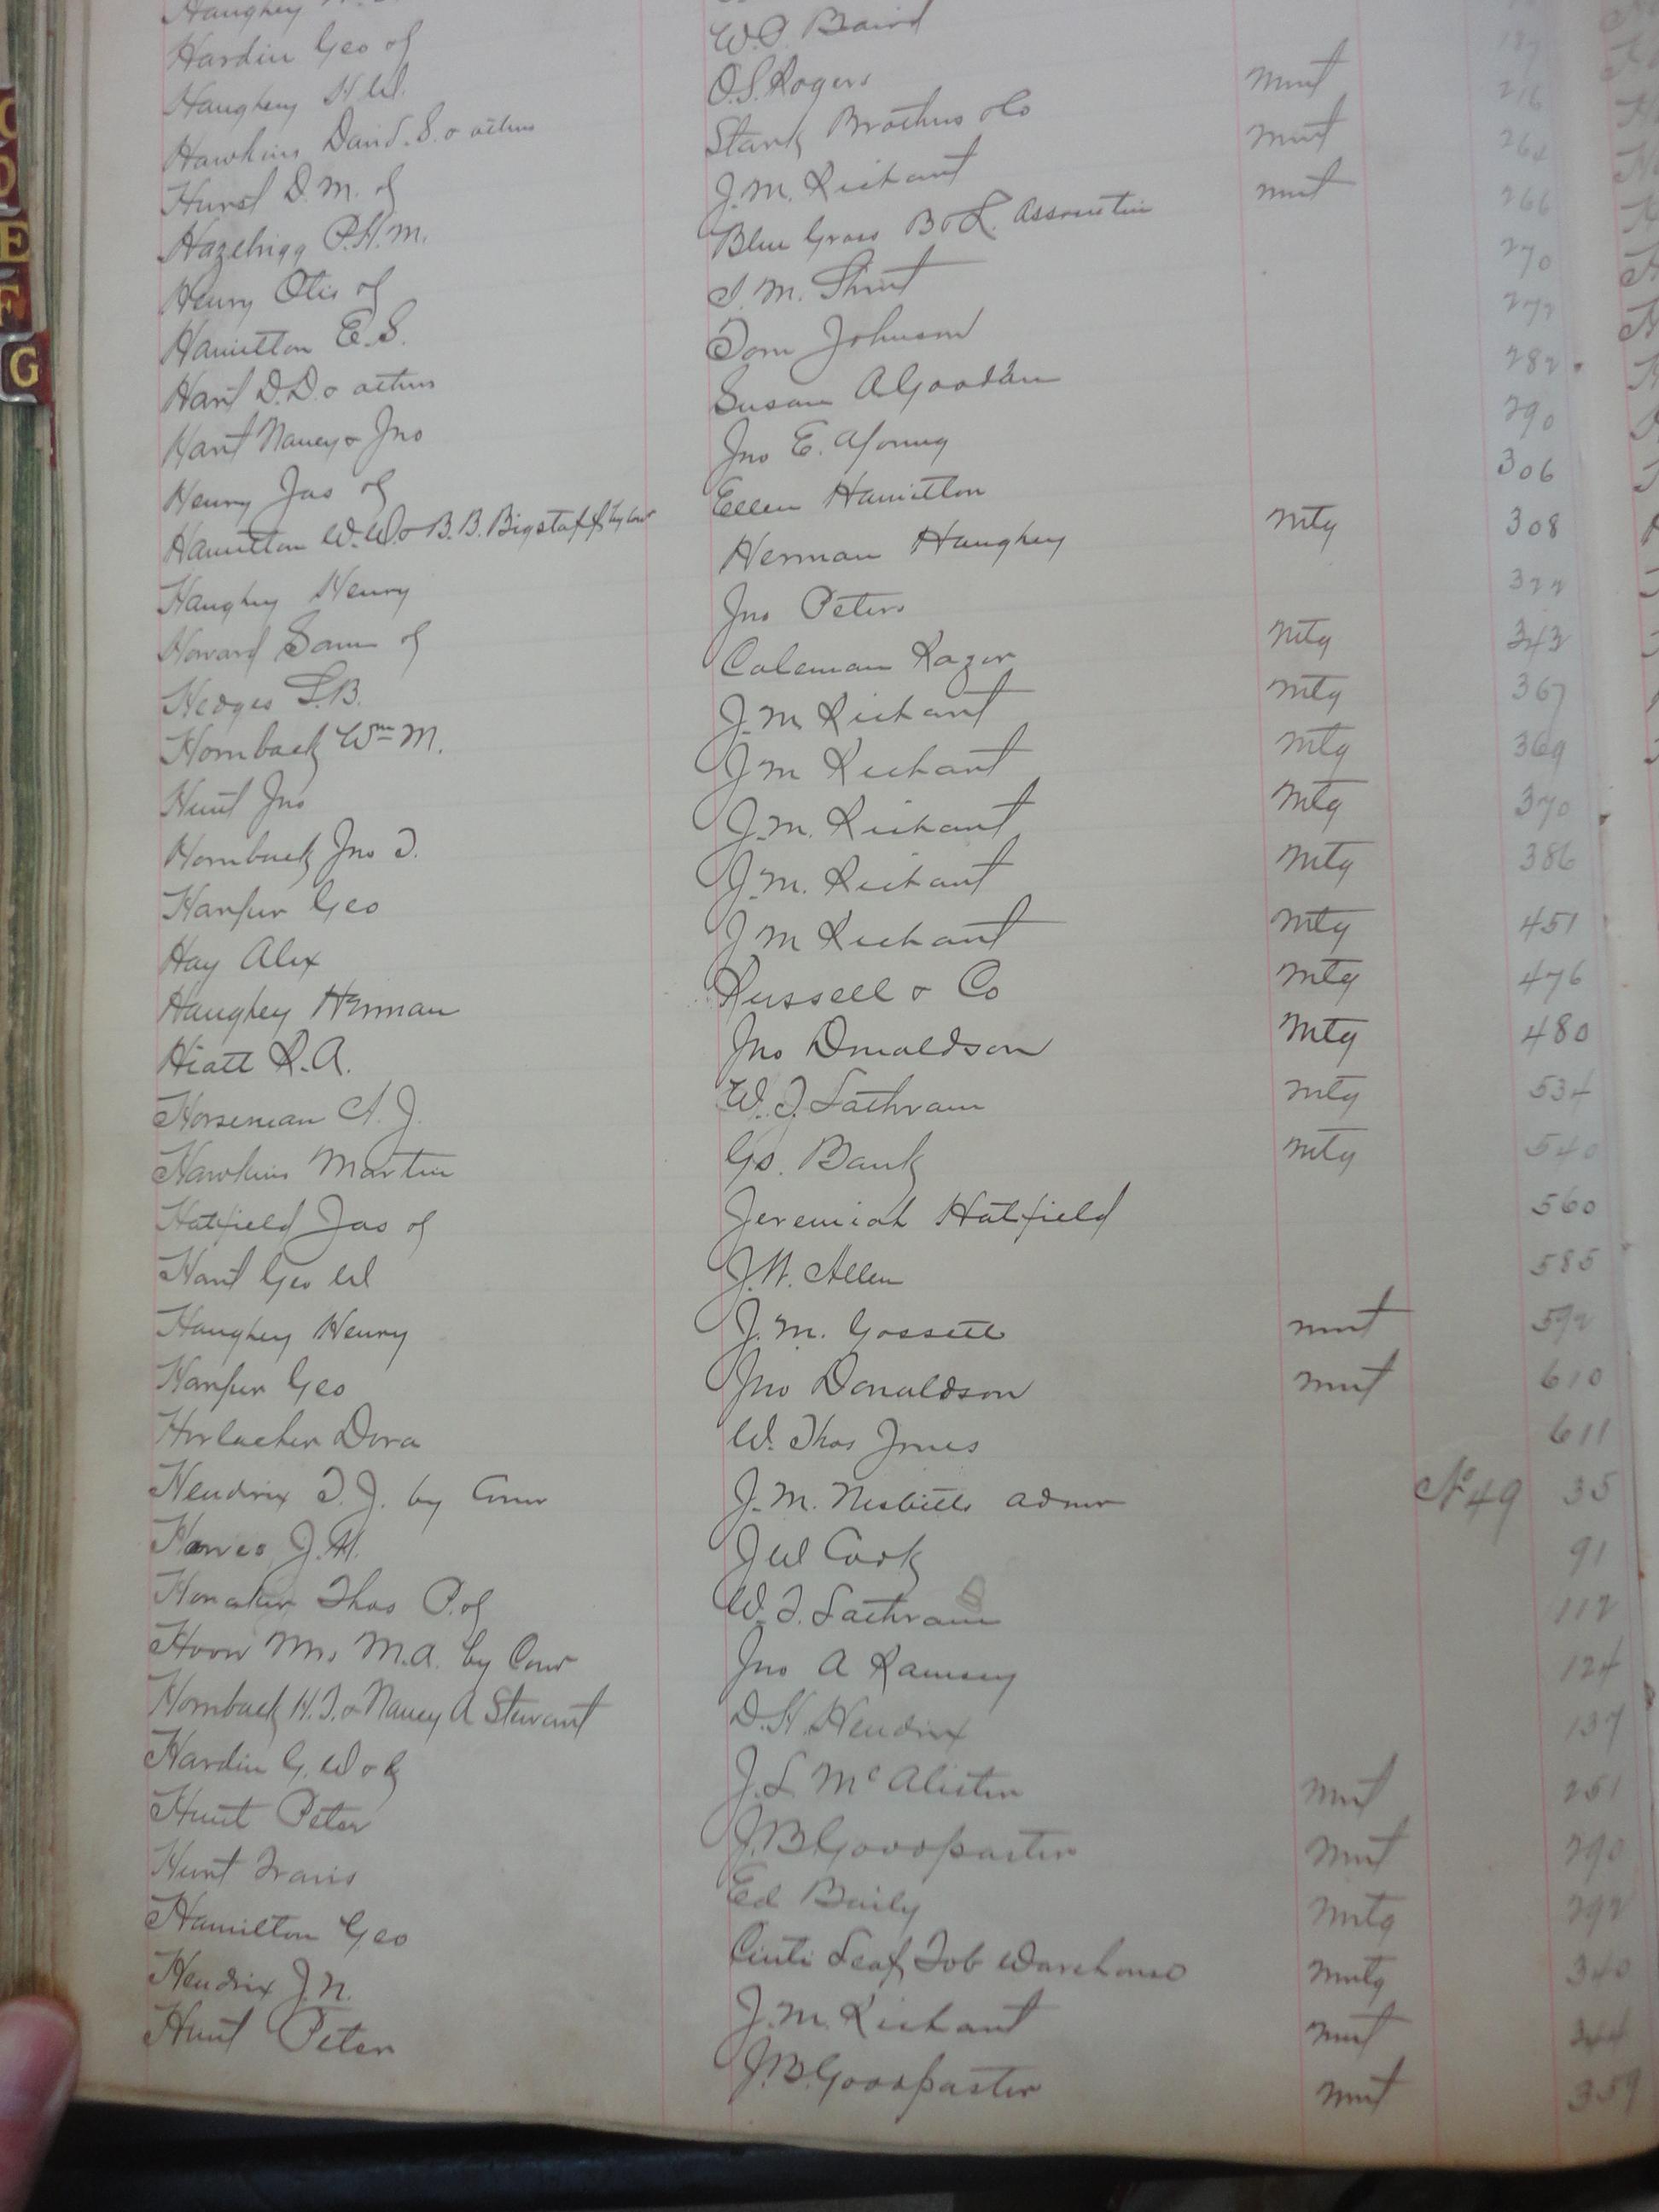 Hardin Geo of
Haughey H W. W.O. Baird
Hawkins David. S. & others O.S. Rogers 187
Hurst D.M. of Stark Brothers & Co mmt 216
Hazelrigg P.H.M. J.M. Rickart mmt 264
Henry Otis of Blue Grass B & L. Association mmt 266
Hamilton E.S. I.M. Shrout 270
Hart D.D. & others Tom Johnson 277
Hart Nancy & Jno Susan A Goodan 282
Henry Jas of Jno E. Young 290
Hamilton W.W. & B.B. Bigstaff by Comr Ellen Hamilton 306
Haughey Henry Herman Haughey mtg 308
Howard Sam of Jno Peters 322
Hedges S.B. Coleman Razor mtg 343
Hornback Wm M. J.M. Rickart mtg 367
Hunt Jno J M Rickart mtg 369
Hornback Jno T. J.M. Rickart mtg 370
Harper Geo J.M. Rickart mtg 386
Hay Alex J M Rickart mtg 451
Haughey Herman Russell & Co mtg 476
Hiatt R.A. Jno Donaldson mtg 480
Horseman A.J. W.T. Lathram mtg 534
Hawkins Martin Bank mtg 540
Hatfield Jas of Jeremiah Hatfield 560
Hart Geo W J.H. Allen 585
Haughey Henry J.M. Gossett mmt 592
Harper Geo Jno Donaldson mmt 610
Horlacher Dora W. Thos Jones 611
Hendrix T.J. by Comr J.M. Nesbitts admr No 49 35
Hawes J.H. J W Cook 91
Honaker Thos P. of W.T. Lathram 112
Hoon Mrs M.A. by Comr Jno A Ramsey 124
Hornback H.T. & Nancy A Stewart D.H. Hendrix 137
Hardin G. W of J.L McAlister mmt 251
Hunt Peter J.B Goodpaster mmt 290
Hunt Travis Ed Baily mtg 292
Hamilton Geo Cinti Leaf Tob Warehouse mtg 340
Hendrix J.N. J.M. Rickart mmt 344
Hunt Peter J.B. Goodpaster mmt 359
C
D
E
F
G